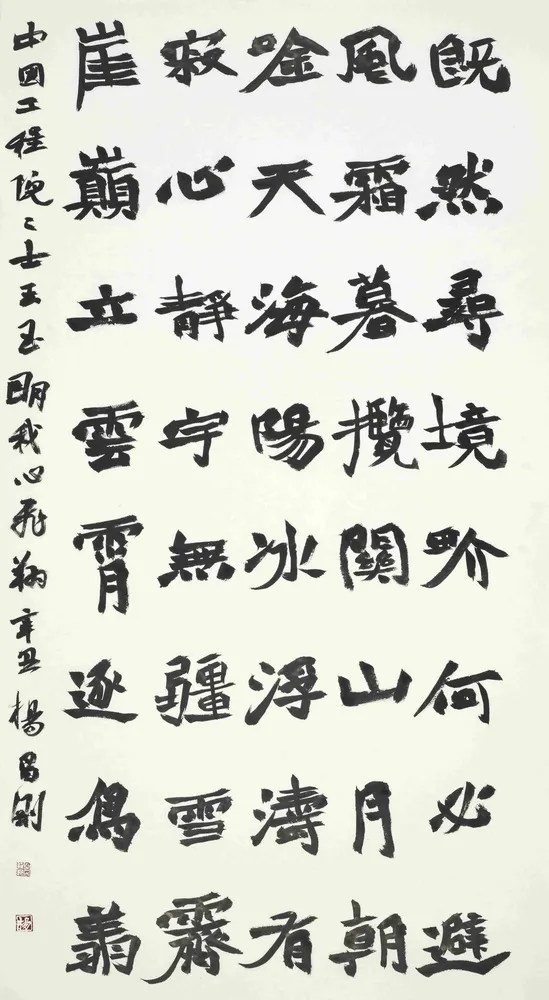 既然尋境畍何必避
風霜暮攬關山月朝
唫天海陽冰浮濤有
寂心靜宇無疆雪霽
崖巔立雲霄逐翔
中國工程院々士王玉明我心飛翔辛丑楊昌剛